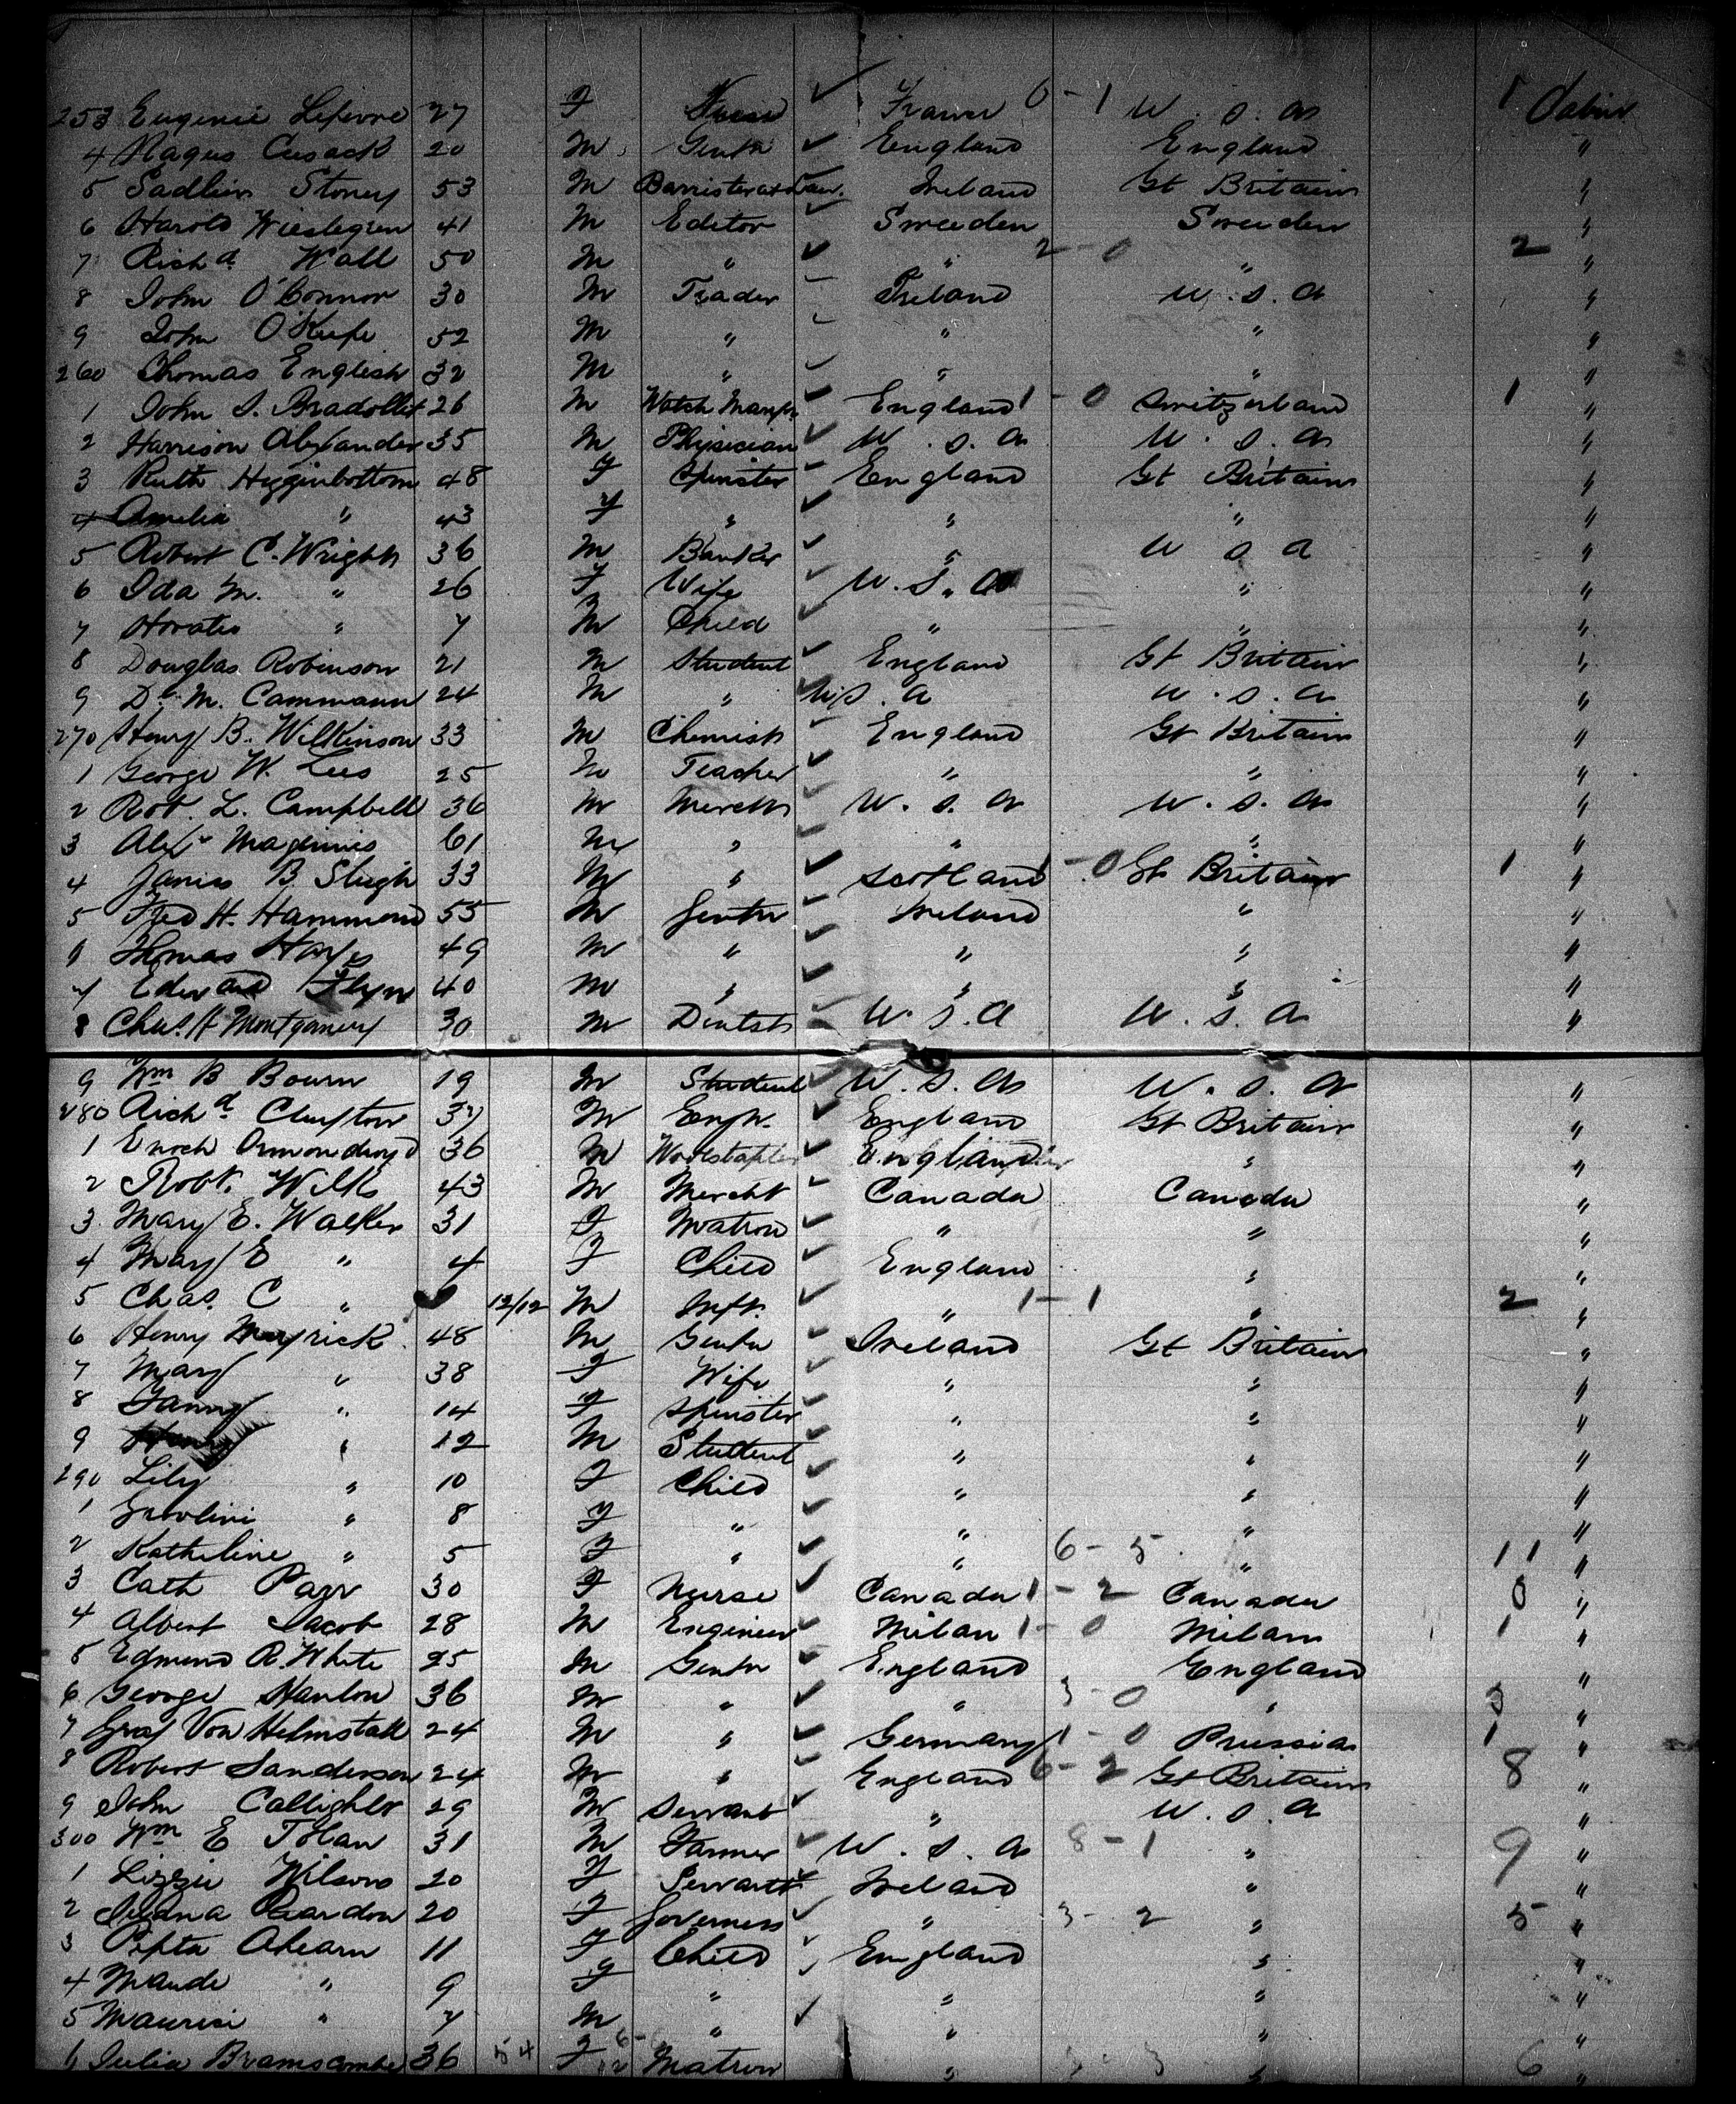 253 Eugenie Lefevre 27 F Nurse ✓ France 0-1 U.S.A 1 Cabin
4 Cusack 20 M Gentn ✓ England England "
5 Sadlier Stoney 53 M Barrister at Law Ireland Gt Britain "
6 Harold Wieslegren 41 M Editor ✓ Sweeden Sweeden "
7 Richd Wall 50 M " ✓ " 2-0 " 2 "
8 John O'Connor 30 M Trader Ireland U.S.A "
9 John O'Keefe 52 M " ✓ " " "
260 Thomas English 32 M " ✓ " " "
1 John S. Bradollet 26 M Watch ✓ England 1-0 Switzerland 1 "
2 Harrison Alexander 35 M Physician ✓ U.S.A U.S.A "
3 Ruth Higginbottom 48 F Spinster ✓ England Gt Britain "
4 Amelia " 43 F " ✓ " " "
5 Robert C. Wright 36 M Banker ✓ " U S A "
6 Ida M. " 26 F Wife ✓ U.S.A " "
7 Horatio " 7 M Child ✓ " " "
8 Douglas Robinson 21 M Student ✓ England Gt Britain "
9 D. M. Cammann 24 M " U.S.A U.S.A "
270 Henry B. Wilkinson 33 M Chemist ✓ England Gt Britain "
1 George W. Lees 25 M Teacher ✓ " " "
2 Rob. L. Campbell 36 M Mercht ✓ U.S.A U.S.A "
3 Alex Maginnis 61 M " ✓ " " "
4 James B. Sleigh 33 M " ✓ Scotland 1-0 Gt Britain 1 "
5 Fred H. Hammond 55 M Gentn ✓ Ireland " "
6 Thomas Hayes 49 M " ✓ " " "
7 Edward Flyn 40 M " ✓ " " "
8 Chas. H Montgomery 30 M Dentist ✓ U.S.A U.S.A "
9 Wm B Bourn 19 M Student ✓ U.S.A U.S.A "
280 Richd Clayton 37 M Engr. ✓ England Gt Britain "
1 Enoch Ormondroyd 36 M Woolstapler ✓ England " "
2 Robt. Wilks 43 M Mercht ✓ Canada Canada "
3 Mary E. Walker 31 F Matron ✓ " " "
4 Mary E " 4 F Child ✓ England " "
5 Chas. C " 12/12 M Inft. ✓ " 1-1 " 2 "
6 Henry Mayrick 48 M Gentn ✓ Ireland Gt Britain "
7 Mary " 38 F Wife ✓ " " "
8 Fanny " 14 F Spinster ✓ " " "
9 Henry " 12 M Student ✓ " " "
290 Lily " 10 F Child ✓ " " "
1 " 8 F " ✓ " " "
2 Katheline " 5 F " ✓ " 6-5 " 11 "
3 Cath Parr 30 F Nurse ✓ Canada 1-2 Canada "
4 Albert Jacob 28 M Engineer ✓ Milan 1-0 Milan 1 "
5 Edmund R. White 25 M Gentn ✓ England England "
6 George Hanlon 36 M " ✓ " 3-0 " 3 "
7 Graf Von Helmstatt 24 M " ✓ Germany 1-0 Prussia 1 "
8 Robert Sanderson 24 M " ✓ England 6-2 Gt Britain 8 "
9 John 29 M Servant ✓ " U.S.A "
300 Wm E Tolan 31 M Farmer ✓ U.S.A 8-1 " 9 "
1 Lizzie Wilson 20 F Servant ✓ Ireland " "
2 20 F Governess ✓ " 3-2 " 5 "
3 Ahearn 11 F Child ✓ England " "
4 Maude " 9 F " ✓ " " "
5 Maurice " 7 M " ✓ " " "
6 Julia Bramscombe 36 F Matron " " 6 "